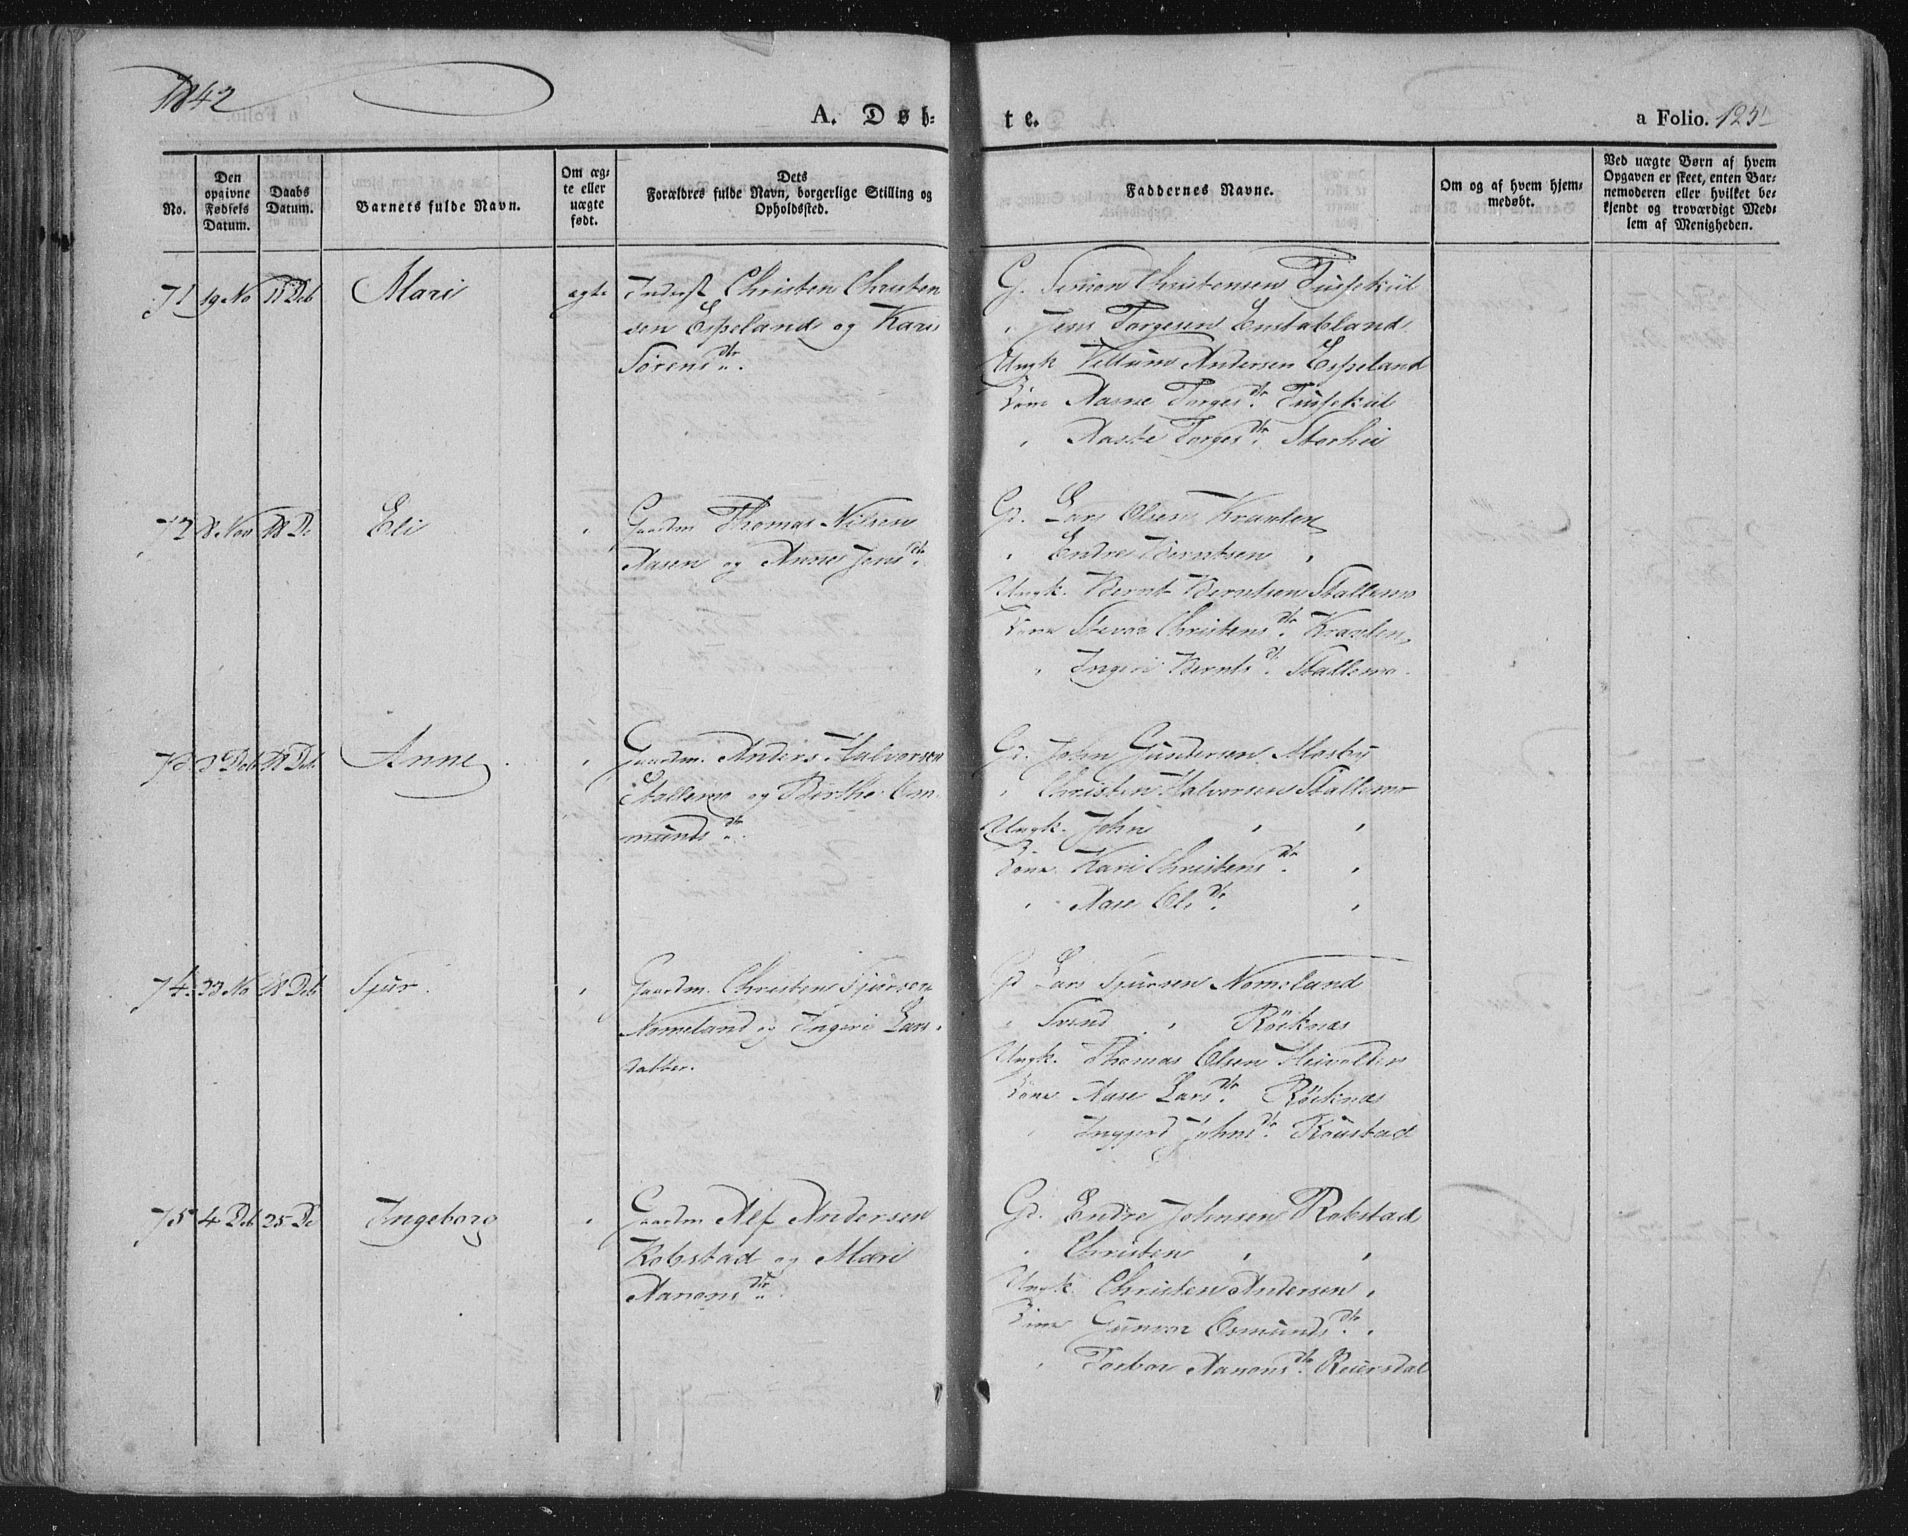 1842
A. Døb- te.
a Folio. 125
No.
Den opgivne Fødsels Datum.
Daabs Datum.
Barnets fulde Navn.
Om æg-
te eller
uægte
født.
Dets
Forældres fulde Navn, borgerlige Stilling og
Opholdssted.
Faddernes Navne.
Om og af hvem hjem-
medøbt.
Ved uægte Børn af hvem
Opgaven er skeet, enten Bar-
nemoderen eller hvilket be-
kjendt og troværdigt Med-
lem af Menigheden.
71 19 No 11 Deb Mari ægte Inderst Christen Christen
sen Espeland og Kari
Sørensdtr.
G. Simon Christensen Tussekiil
" Jens Torgesen Enstabland
Ungk Villum Andersen Espeland
Kone Aasne Torgesdtr. Tussekiil
" Aaste Torgesdtr. Storhei
72 8 Nov 18 De Eli " Gaardm Thomas Nilsen
Aasen og Anne Jensdtr.
Gd. Lars Olsen Kravlen
" Endre Berntsen "
Ungk. Bernt Berntsen Stallemo
Kone Christensdtr. Kravlen
" Ingeri Berntsd. Stallemo.
73 3 Deb 18 Deb. Anne " Gaardm. Anders Halvorsen
Stallemo og Berthe Os-
mundsdtr.
Gd. John Gundersen Mosby
" Christen Halvorsen Stallemo
Ungk. John " "
Kone Kari Christensdtr. "
" Aase Olsdtr. "
74. 23 No 18 Deb Sjur. " Gaardm. Christen Sjursen
Nomeland og Ingeri Lars-
datter.
Gd Lars Sjursen Nomeland
" Svend " Röiknæs
Ungk. Thomas Olsen Heivolden
Kone Aase Larsdtr. Röiknæs
" Johnsdtr. Röustad
75 4 Deb 25 De Ingeborg " Gaardm Alf Andersen
Robstad og Mari
Aanonsdtr.
Gd. Endre Johnsen Robstad
" Christen " "
Ungk. Christen Andersen "
Kone Gunvor Osmundsdtr. "
" Torbor Aanonsdtr. Reiersdal